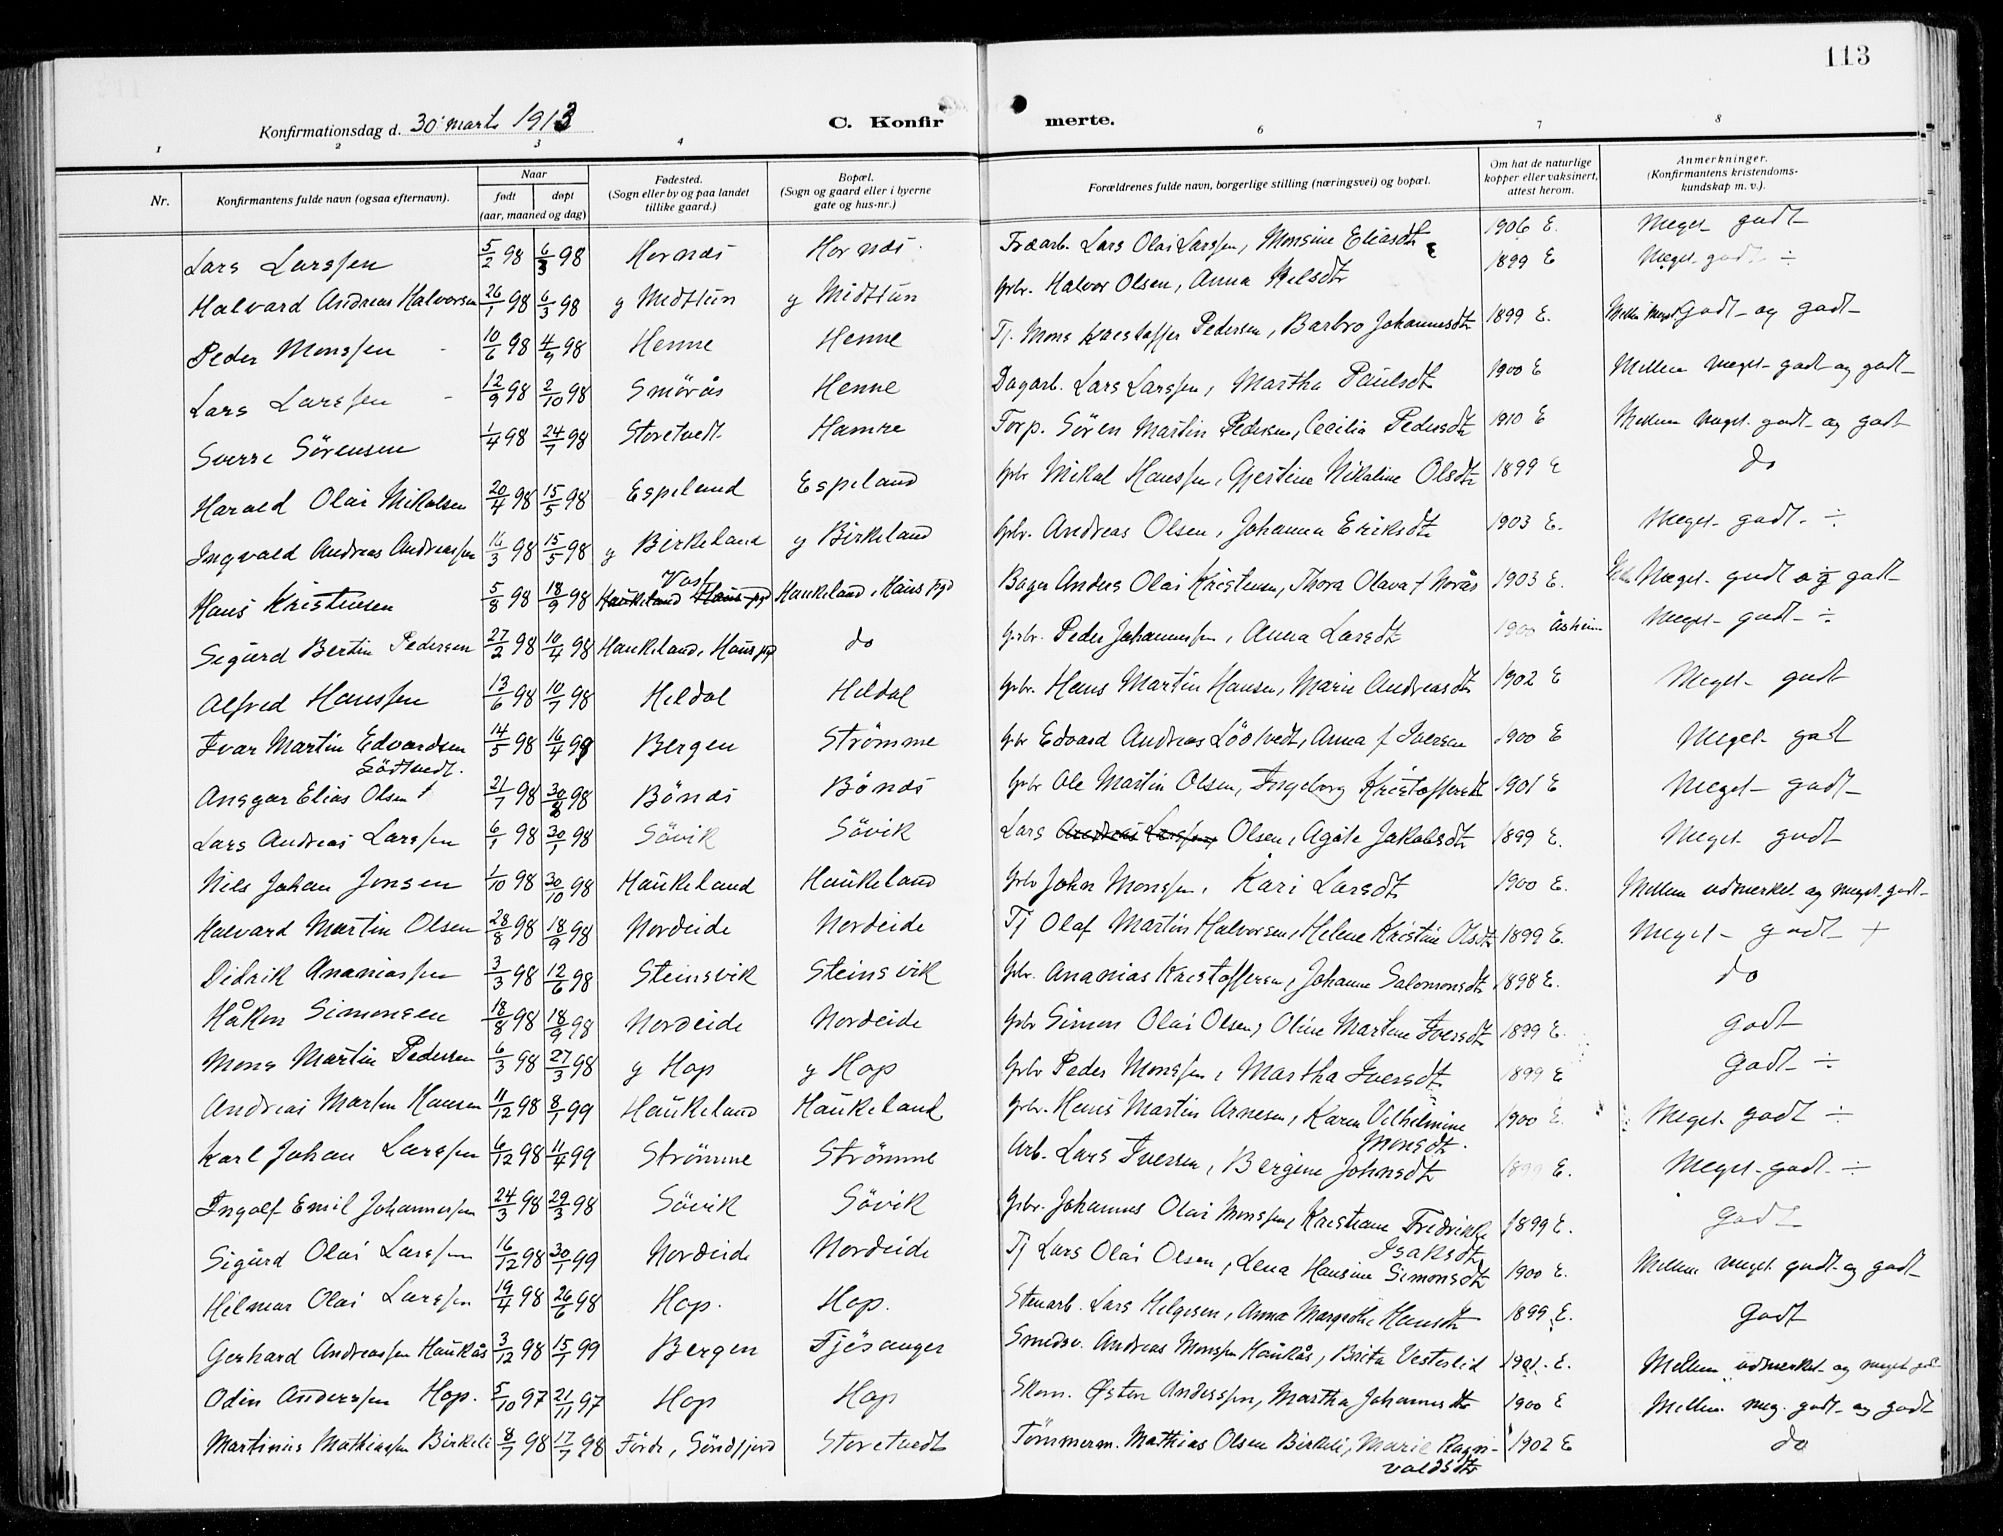 113
Konfirmationsdag d. 30' marts 1913 C. Konfirmerte.
1 2 3 4 6 7 8
Nr. Konfirmantens fulde navn (ogsaa efternavn). Naar født døpt (aar, maaned og dag) Fødested. (Sogn eller by og paa landet tillike gaard.) Bopæl. (Sogn og gaard eller i byerne gate og hus-nr.) Forældrenes fulde navn, borgerlige stilling (næringsvei) og bopæl. Om hat de naturlige kopper eller vaksinert, attest herom. Anmerkninger. (Konfirmantens kristendomskundskap m. v.).
Lars Larssen 5/2 98 6/3 98 Hornæs Hornæs. Træarb. Lars Olai Larssen, Monsine Eliasdtr 1906 E. Meget godt
Halvard Andreas Halvorsen 26/1 98 6/3 98 y Midttun y Midttun Gbr. Halvor Olsen, Anna Nilsdtr 1899 E Meget godt ÷
Peder Monssen 10/6 98 4/9 98 Henne Henne Tj. Mons Kristoffer Pedersen, Barbro Johannesdtr 1899 E. Mellem Meget Godt og godt
Lars Larssen 12/9 98 2/10 98 Smörås Henne Dagarb. Lars Larssen, Martha Paulsdtr 1900 E Mellem meget godt og godt
Sverre Sörensen 1/4 98 24/7 98 Storetvedt Hamre Forp. Sören Martin Pedersen, Cecilia Pedersdtr 1910 E Mellem meget godt og godt
Harald Olai Mikalsen 20/4 98 15/5 98 Espeland Espeland Gbr Mikal Hanssen, Gjertine Nikoline Olsdtr 1899 E do
Ingvald Andreas Andreassen 16/3 98 15/5 98 y Birkeland y Birkeland Gbr. Andreas Olsen, Johanna Eriksdtr 1903 E. Meget godt ÷
Hans Kristensen 5/8 98 18/9 98 Haukeland Haus pgd Voss Haukeland, Haus pgd Bager Anders Olai Kristensen, Thora Olava f Norås 1903 E. Meget godt og godt
Sigurd Bertin Pedersen 27/2 98 10/4 98 Haukeland, Haus pgd do Gbr. Peder Johannessen, Anna Larsdtr 1900 Åsheim Meget godt ÷
Alfred Hanssen 13/6 98 10/7 98 Heldal Heldal Gbr. Hans Martin Hansen, Marie Andreasdtr 1902 E Meget godt
Ivar Martin Edvardsen Södtvedt. 14/5 98 16/4 99 Bergen Strömme Gbr Edvard Andreas Lödtvedt, Anna f Iversen 1900 E Meget godt
Ansgar Elias Olsen + 21/7 98 30/8 98 Bönæs Bönæs Gbr Ole Martin Olsen, Ingeborg Kristoffersdtr 1901 E Meget godt
Lars Andreas Larssen 6/1 98 30/1 98 Sövik Sövik Lars Andreas Larssen, Olsen, Agate Jakobsdtr 1899 E. Meget godt
Nils Johan Jonsen 1/10 98 30/10 98 Haukeland Haukeland Gbr John Monssen, Kari Larsdtr 1900 E. Mellem udmerket og meget godt
Halvard Martin Olsen 28/8 98 18/9 98 Nordeide Nordeide Tj Olaf Martin Halvorsen, Helene Kristine Olsdtr 1899 E. Meget godt +
Didrik Ananiassen 3/3 98 12/6 98 Steinsvik Steinsvik Gbr. Ananias Kristoffersen, Johanne Salomonsdtr 1898 E. do
Håkon Simonsen 18/8 98 18/9 98 Nordeide Nordeide Gbr Simon Olai Olsen, Oline Martine Iversdtr 1899 E. godt
Mons Martin Pedersen 6/3 98 27/3 98 y Hop y Hop Gbr Peder Monssen, Martha Iversdtr 1899 E Godt ÷
Andreas Marten Hansen 11/12 98 8/1 99 Haukeland Haukeland Gbr. Hans Martin Arnesen, Karen Vilhelmine Monsdtr. 1900 E. Meget godt ÷
Karl Johan Larssen 6/12 98 11/4 99 Strömme Strömme Arb. Lars Iversen, Bergine Johnsdtr 1899 E. Meget godt ÷
Ingolf Emil Johannessen 24/3 98 29/3 98 Sövik Sövik Gbr. Johannes Olai Monssen, Kristiane Fredrikke Isaksdtr 1899 E. Godt
Sigurd Olai Larssen 16/12 98 30/1 99 Nordeide Nordeide Tj Lars Olai Olsen, Lena Hansine Simonsdtr 1900 E. Mellem meget godt og godt
Hilmar Olai Larssen 19/4 98 26/6 98 Hop. Hop. Stenarb. Lars Helgesen, Anna Margrethe Hansdtr 1899 E. Godt
Gerhard Andreassen Haukås 3/12 98 15/1 99 Bergen Fjösanger Smedsv. Andreas Monssen Haukås, Brita Vesterlid 1901. E. Mellem udmerket og meget godt
Odin Anderssen Hop. 5/10 97 21/11 97 Hop Hop Skom. Østen Anderssen, Martha Johannesdtr 1900 E Mellem meg. godt og godt
Martinius Mathiassen Birkeli 8/7 98 17/7 98 Förde, Söndfjord Storetvedt Tömmerm. Mathias Olsen Birkeli, Marie Ragnvaldsdtr 1902 E do